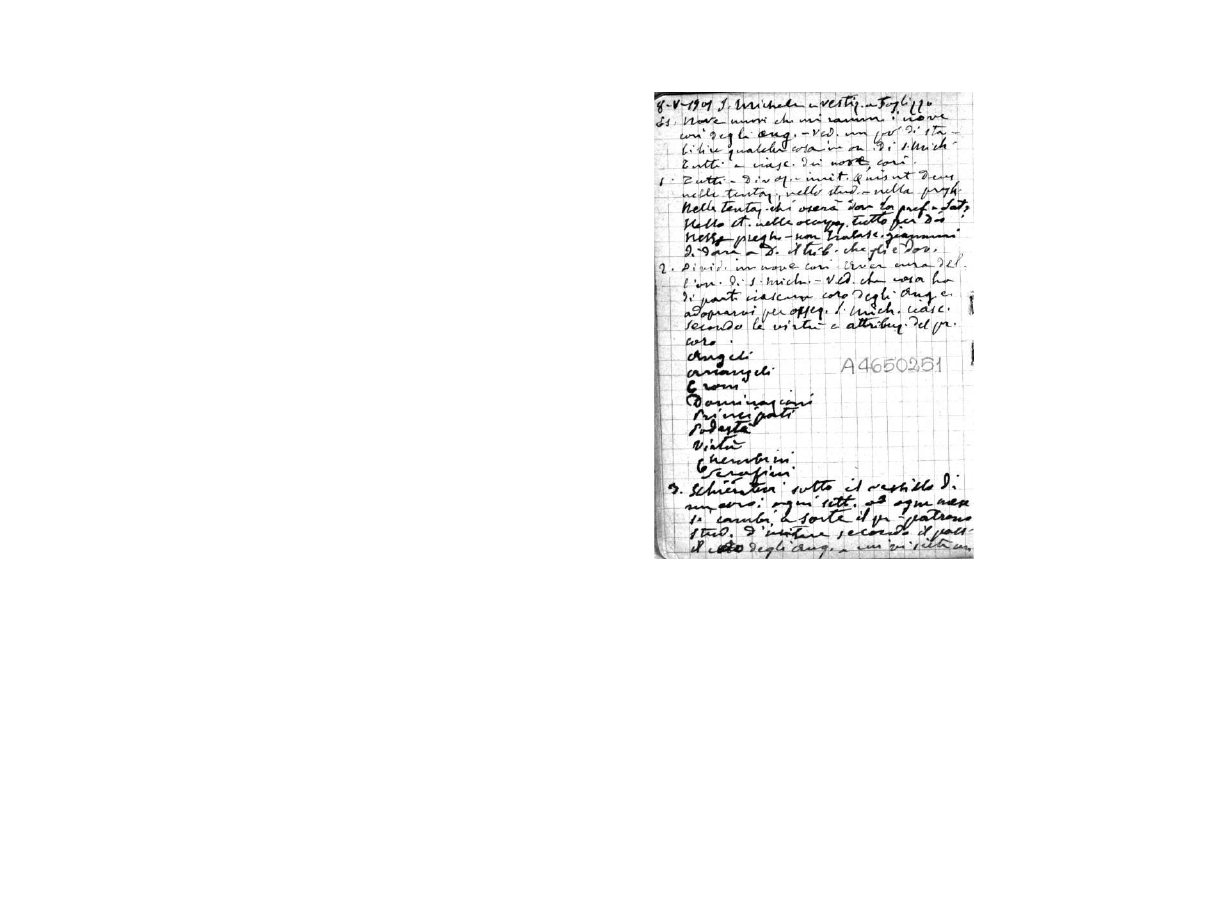 8-V-1901 S. Michele a vestiz. a Foglizzo
Es. Nove che mi i nove
cori degli ang. - Ved. un po' di sta-
bilire qualche cosa in on. di S. Mich.
Tutti a ciasc. dei nove cori.
1. Tutti - Divoz. - imit. Quis ut Deus
nelle tentaz. nello stud. - nella pregh.
Nelle tentaz. chi oserà dar la pref. a Sat.?
Nello st. nelle occupaz. tutto per Dio!
Nella pregh. - non tralasc. giammai
di dare a D. il trib. che gli è dov.
2. Divid. in nove cori aver cura del-
l'on. di S. Mich. - Ved. che cosa ha
di part. ciascun coro degli Ang. e
adoprarvi per osseq. S. Mich. ciasc.
secondo le virtù e attribuz. del pr.
coro.
Angeli
Arcangeli
Troni
Dominazioni
Principati
Podestà
Virtù
Cherubini
Serafini
A4650251
3. Schieratevi sotto il vessillo di
ogni sett. od ogni mese
si cambi, a sorte il pr. patrono
stud. d'imitare secondo il poss.
il degli Ang. a cui